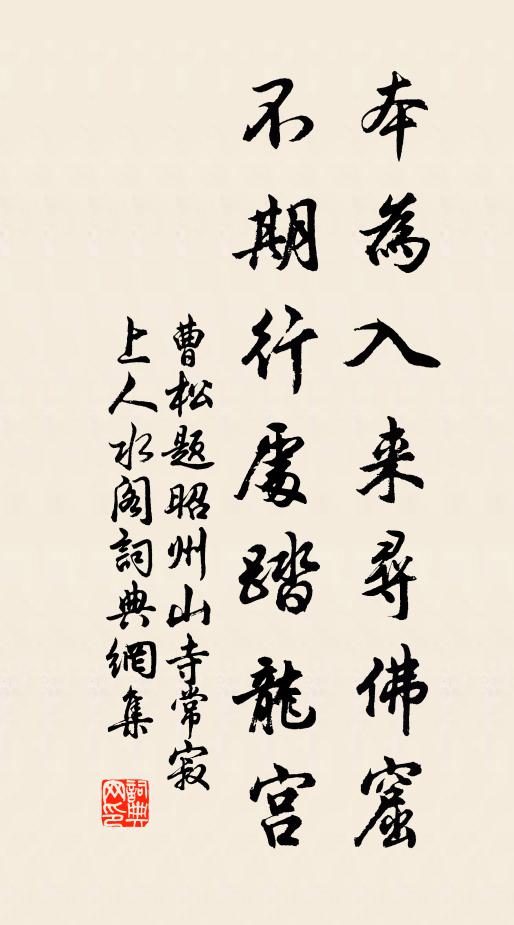 本為入来尋佛窟
不期行處踏龍宮
曹松題昭州山寺常寂
上人水阁詞典網集
詞典网印